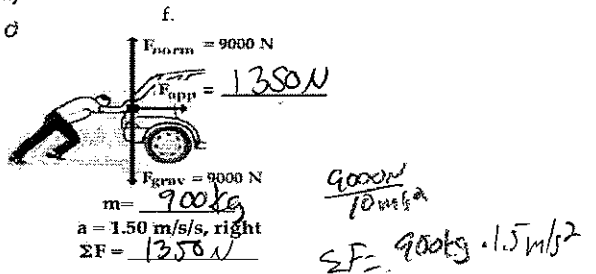 f.
Fnorm = 9000 N
Fapp = 1350N
Fgrav = 9000 N
m= 900kg
a = 1.50 m/s/s, right
ΣF = 1350 N
9000N
10m/s²
ΣF= 900kg · 1.5 m/s²